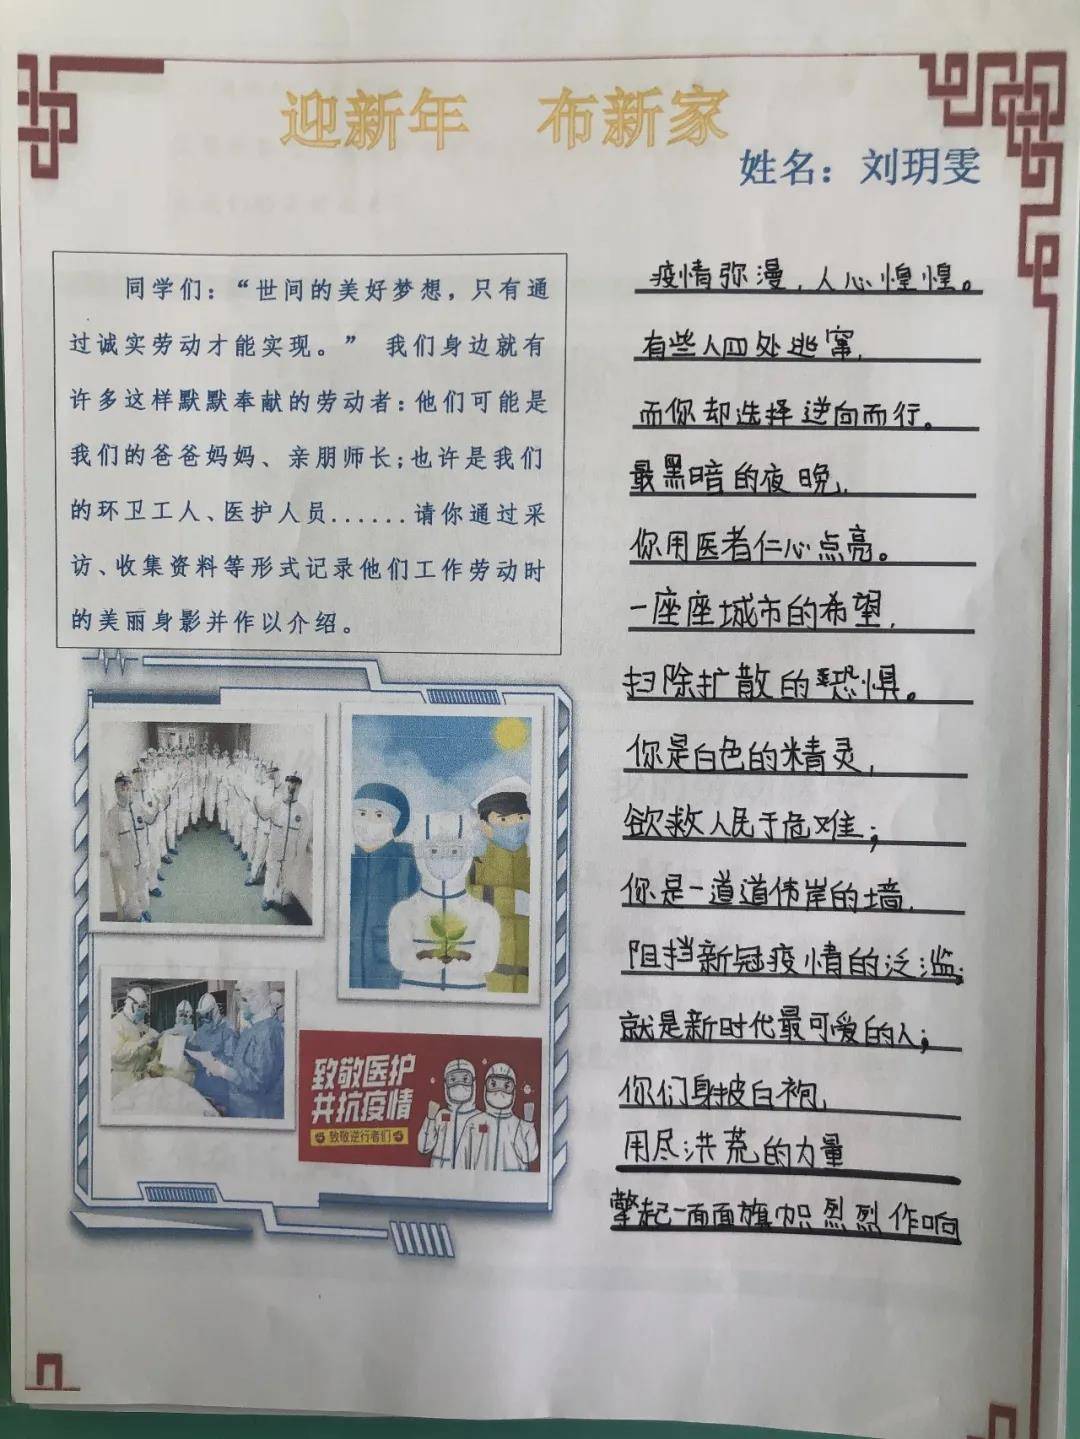 迎新年 布新家
姓名：刘玥雯
同学们：“世间的美好梦想，只有通
过诚实劳动才能实现。” 我们身边就有
许多这样默默奉献的劳动者：他们可能是
我们的爸爸妈妈、亲朋师长；也许是我们
的环卫工人、医护人员......请你通过采
访、收集资料等形式记录他们工作劳动时
的美丽身影并作以介绍。
致敬医护
共抗疫情
致敬逆行者们
疫情弥漫，人心惶惶。
有些人四处逃窜，
而你却选择逆向而行。
最黑暗的夜晚，
你用医者仁心点亮。
一座座城市的希望，
扫除扩散的恐惧。
你是白色的精灵，
欲救人民于危难；
你是一道道伟岸的墙，
阻挡新冠疫情的泛滥；
就是新时代最可爱的人；
你们身披白袍，
用尽洪荒的力量
擎起一面面旗帜烈烈作响